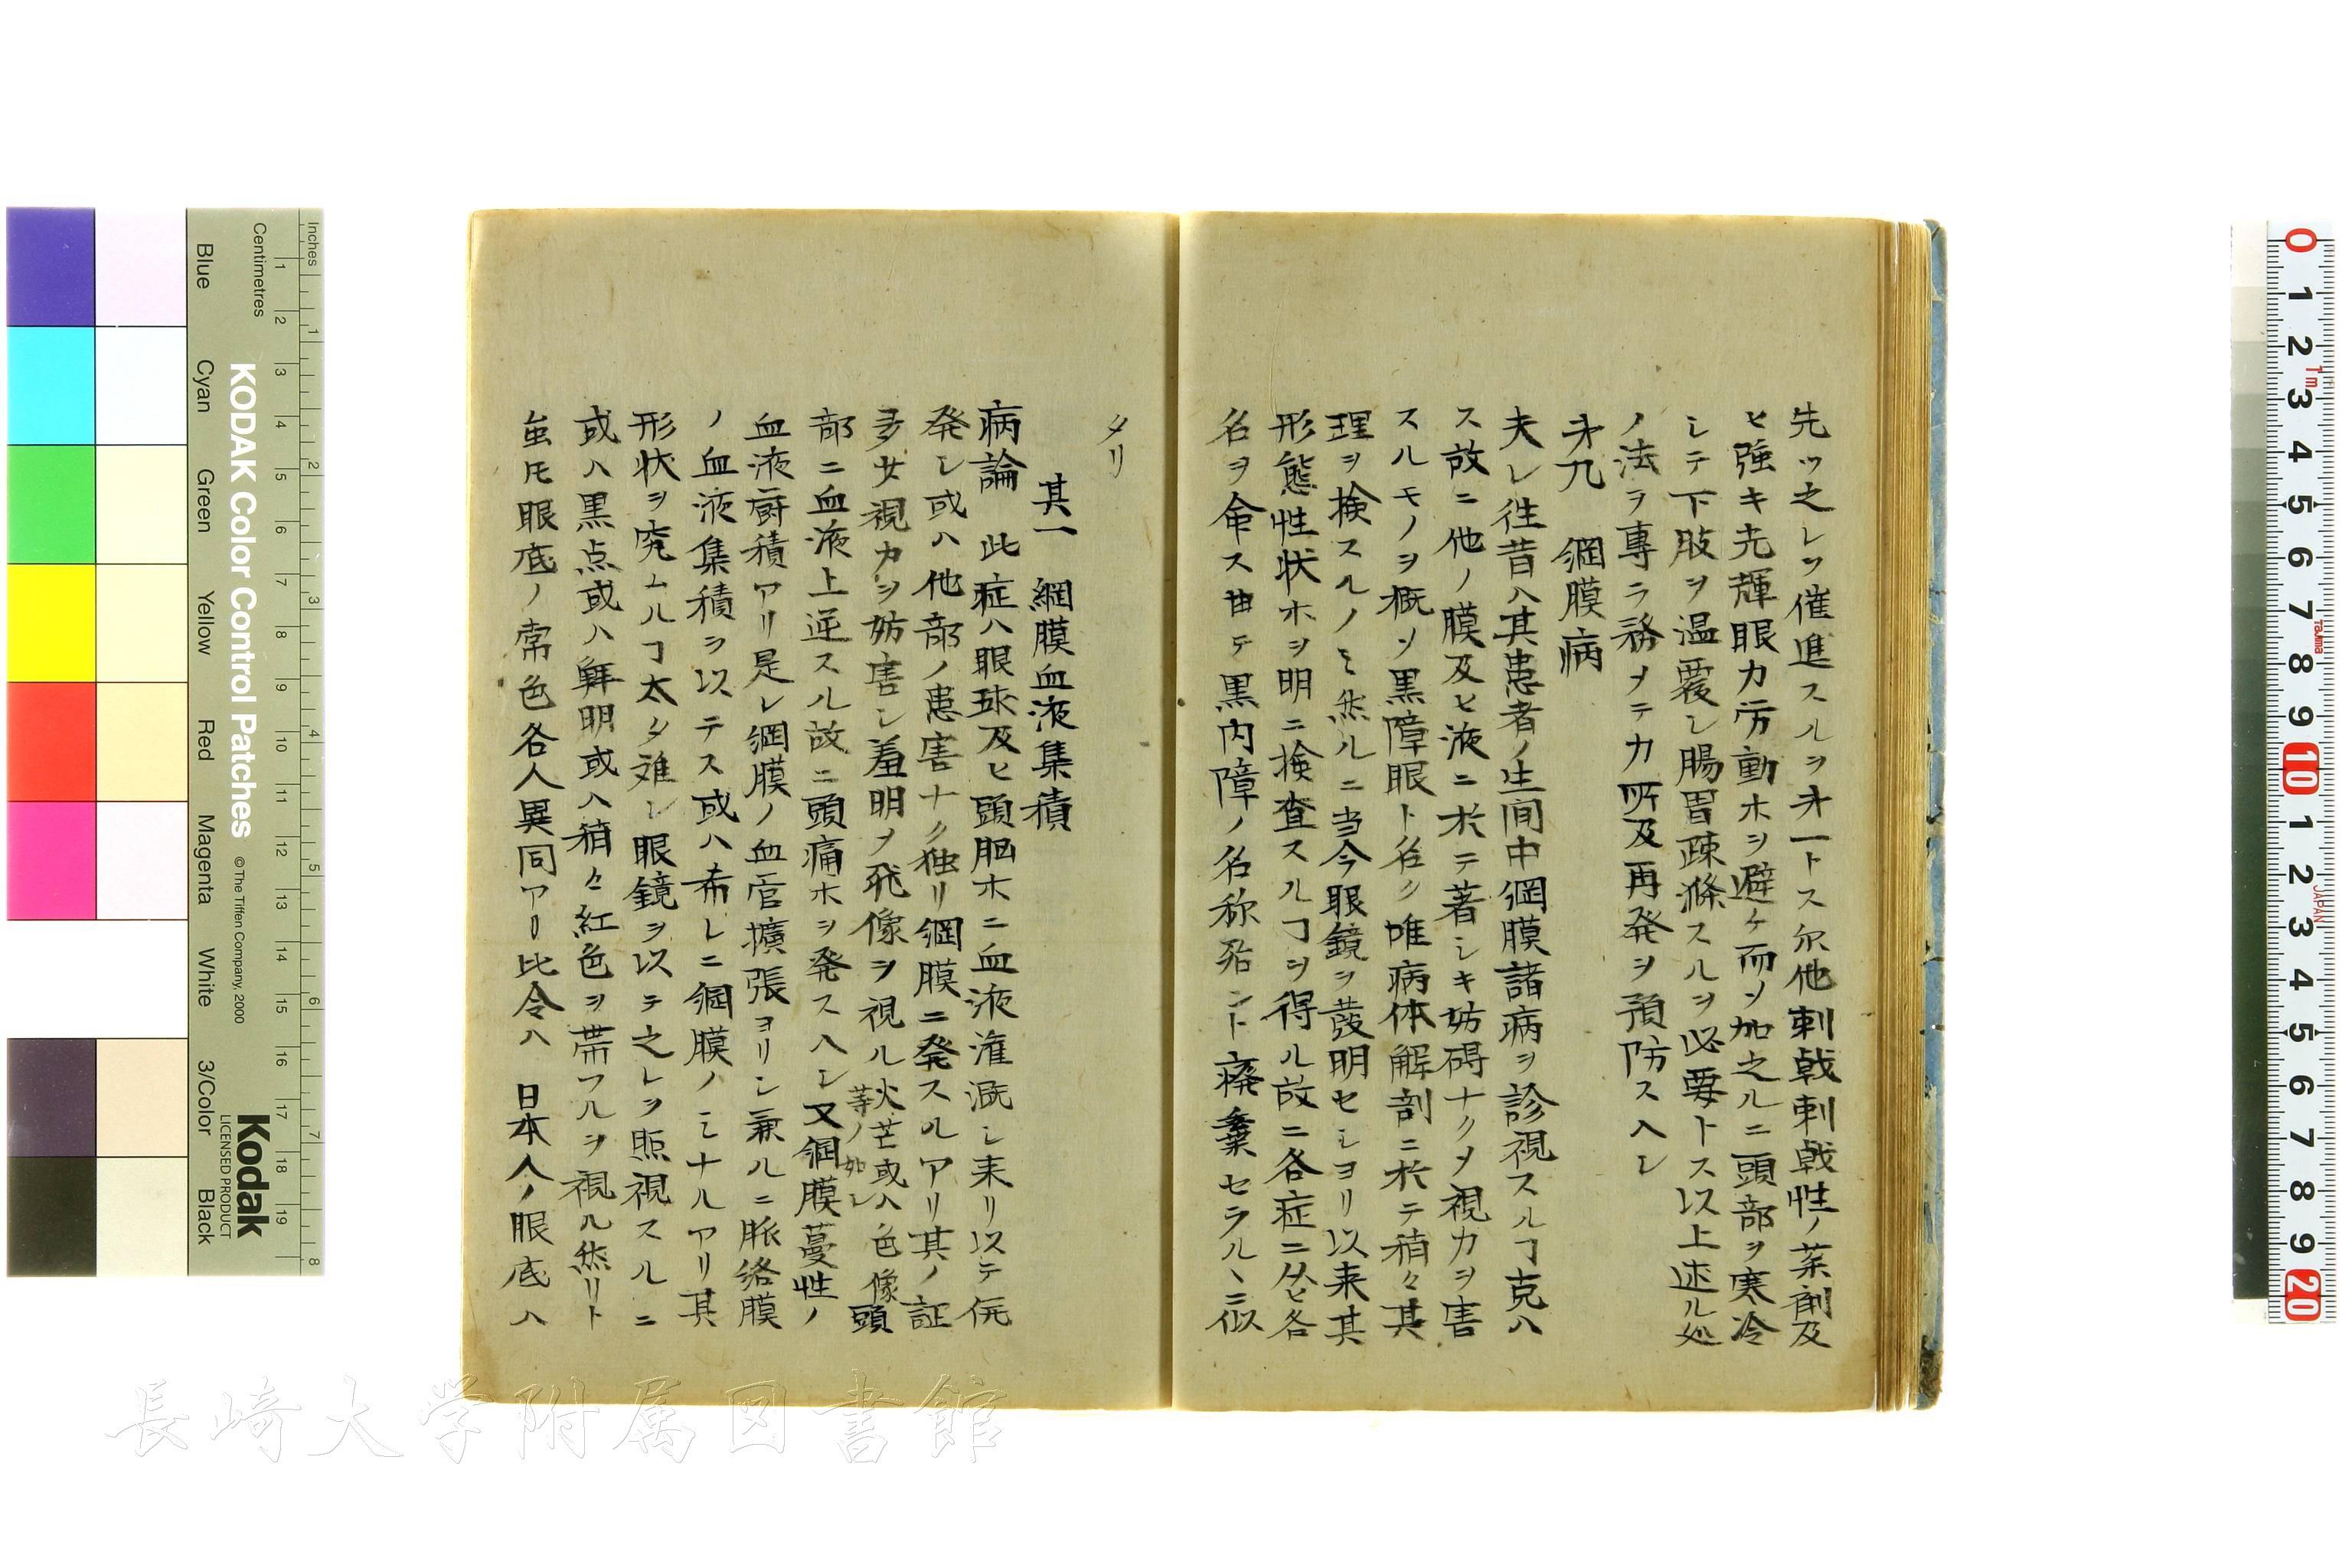 先ツ之レヲ催進スルヲ㐧一トス尓他刺戟刺戟性ノ茶剤及
ヒ強キ光輝眼力労動ホヲ避ケ而ソ加之ルニ頭部ヲ寒冷
シテ下肢ヲ温覆シ腸胃疎滌スルヲ必要トス以上述ル処
ノ法ヲ專ラ務メテ力所及再発ヲ預防スヘシ
㐧九 網膜病
夫レ往昔ハ其患者ノ生間中網膜諸病ヲ診視スルヿ克ハ
ス故ニ他ノ膜及ヒ液ニ於テ著シキ妨碍ナクメ視力ヲ害
スルモノヲ概ソ黒障眼ト名ク唯病体解剖ニ於テ稍々其
理ヲ検スルノミ然ルニ当今眼鏡ヲ發明セシヨリ以来其
形態性状ホヲ明ニ検査スルヿヲ得ル故ニ各症ニ从ヒ各
名ヲ命ス由テ黒内障ノ名称殆ント廃棄セラルヽニ似
タリ
其一 網膜血液集積
病論 此症ハ眼球及ヒ頭脳ホニ血液潅漑シ来リ以テ併
発シ或ハ他部ノ患害ナク独リ網膜ニ発スルアリ其ノ証
多少視力ヲ妨害シ羞明ヲ飛像ヲ視ル火芒或ハ色像等ノ如シ頭
部ニ血液上逆スル故ニ頭痛ホヲ発スヘシ又網膜蔓性ノ
血液厨積アリ是レ網膜ノ血管擴張ヨリシ兼ルニ脈絡膜
ノ血液集積ヲ以テス或ハ希レニ網膜ノミナルアリ其
形状ヲ究ムルヿ太タ難シ眼鏡ヲ以テ之レヲ照視スルニ
或ハ黒点或ハ鮮明或ハ稍々紅色ヲ帯フルヲ視ル然リト
虽𪜈眼底ノ常色各人異同アリ比令ハ 日本人ノ眼底ハ
長崎大学附属図書館
KODAK Color Control Patches
© The Tiffen Company, 2000
Kodak
LICENSED PRODUCT
Inches
Centimetres
Blue
Cyan
Green
Yellow
Red
Magenta
White
3/Color
Black
1 2 3 4 5 6 7 8 9 10 11 12 13 14 15 16 17 18 19
1 2 3 4 5 6 7 8
0 1 2 3 4 5 6 7 8 9 10 1 2 3 4 5 6 7 8 9 20
1m
Tajima
JAPAN